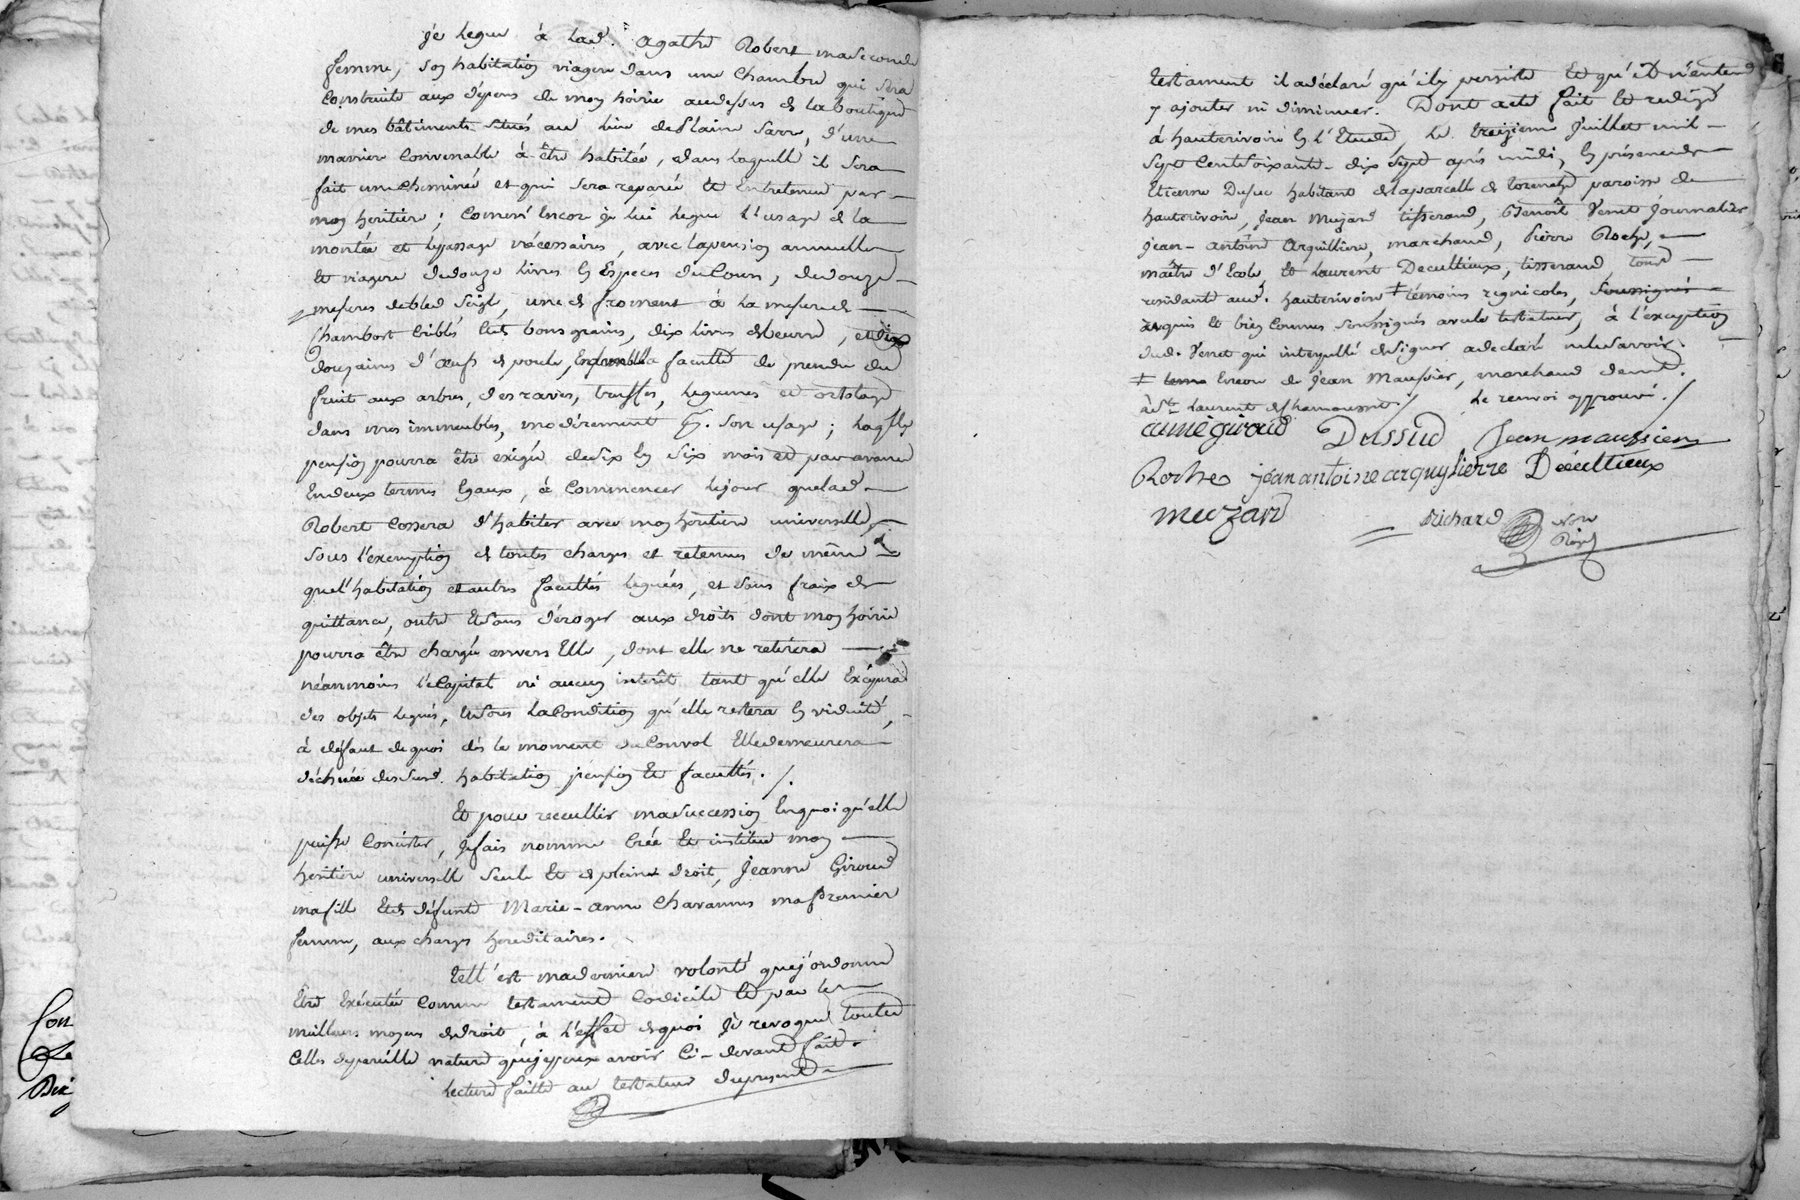 je legue à lad. agathe Robert ma seconde
femme, son habitation viagere dans une chambre qui sera
construite aux dépens de mon hoirie audessus de la boutique
de mes bâtiments situés au lieu de Plaine Sarre, d'une
maniere convenable à être habitée, et dans laquelle il sera
fait une cheminée et qui sera reparée et entretenue par
mon heritier; comm'encor je lui legue l'usage de la
montée et le passage nécessaires, avec la pension annuelle
et viagere de douze livres en especes du cours, de douze
mesures de bled seigle, une de froment à la mesure de
Chambost criblés et de bons grains, dix livres de beurre, et dix
douzaines d'œufs de poule, Ensemble la faculté de prendre du
fruit aux arbres, des raves, truffes, legumes et ortolage
dans mes immeubles, modérément pr. son usage; laqlle
pension pourra être exigée de six en six mois et par avance
en deux termes egaux, à commencer le jour que lad.
Robert cessera d'habiter avec mon héritiere universelle,
sous l'exemption de toutes charges et retenues de même
que l'habitation et autres facultés leguées, et sans fraix de
quittance, outre et sans déroger aux droits dont mon hoirie
pourra être chargée envers elle, dont elle ne retirera
néanmoins le capital ni aucun interêt tant qu'elle exigera
des objets legués, et sous la condition qu'elle restera en viduité,
à défaut de quoi dès le moment du convol elle demeurera
déchuée des susd. habitation pension et facultés. /.
Et pour recueillir ma succession en quoi qu'elle
puisse consister, je fais nomme créé et institue mon
heritiere universelle seule et de plein droit, Jeanne Giroud
ma fille et de défunte Marie-anne Chavannes ma premier
femme, aux charges hereditaires.
Tell'est ma derniere volonté que j'ordonne
être exécutée comme testament codicile et par les
meilleurs moyens de droit, à l'effet de quoi je revoque toutes
celles de pareille nature que je peux avoir ci-devant fait.
Lecture faitte au testateur du present
testament il a déclaré qu'il y persiste et qu'il n'entend
y ajouter ni diminuer. Dont acte fait et redigé
à hauterivoire en l'Etude, le treizieme juillet mil
sept cent soixante-dix sept après midi, en présence de
Etienne Dusuc habitant de la parcelle de paroisse de
hauterivoire, jean Muzard tisserand, Benoît Venet journalier,
jean-antoine Arquilliere, marchand, Pierre Roche,
maître d'Ecole, et Laurent Decultieux, tisserand, tous
residants aud. hauterivoire ‡ témoins regnicoles, soussignés
requis et bien connus soussignés avec le testateur, à l'exception
dud. Venet qui interpellé de signer a declaré ne le savoir.
‡ Encor de jean Maussier, marchand demt.
à St. Laurent de Chamousset. / Le renvoi approuvé. /
aimé giroud Dussud Jean maussier
Roche jean antoine arquilliere Décultieux
muzard
Richard Nore
Royal